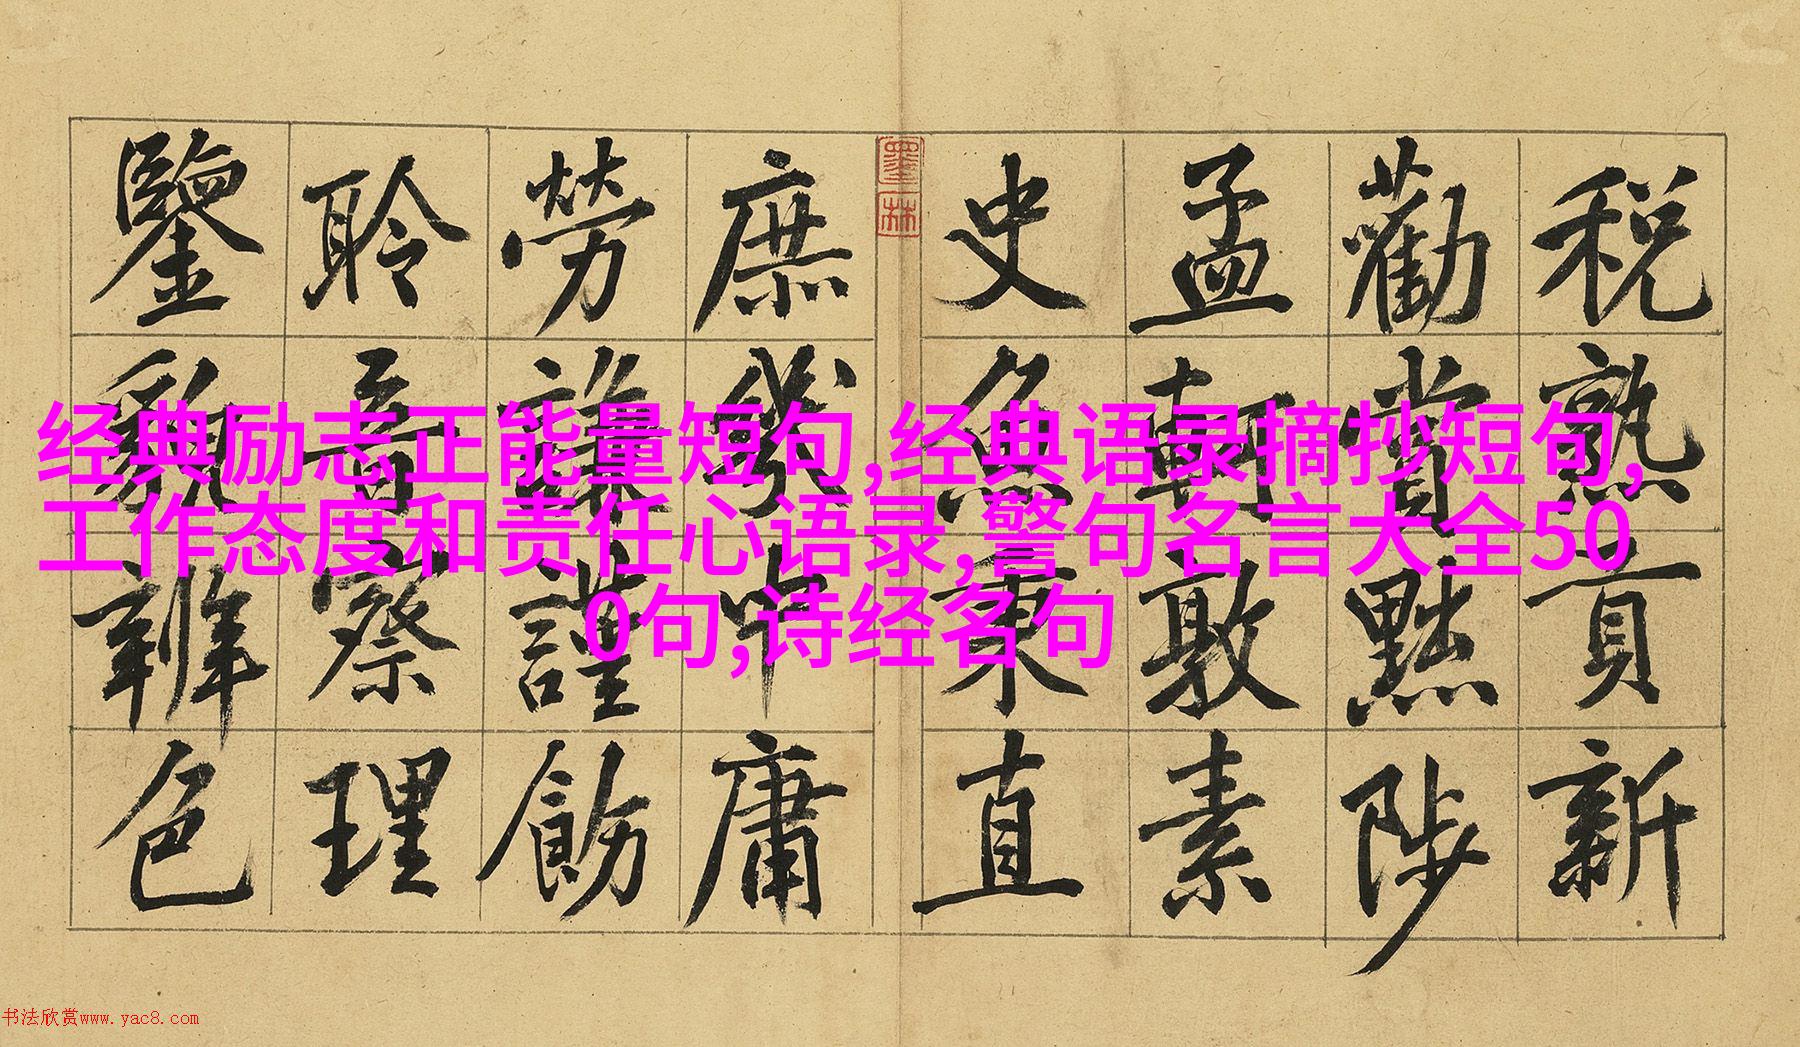 经典励志正能量短句,经典语录摘抄短句,
工作态度和责任心语录,警句名言大全50
0句,诗经名句
税熟貢新
勸賞黜陟
孟軻敦素
史魚秉直
墨林
庶幾中庸
勞謙謹飭
聆音察理
鑒貌辨色
书法欣赏www.yac8.com